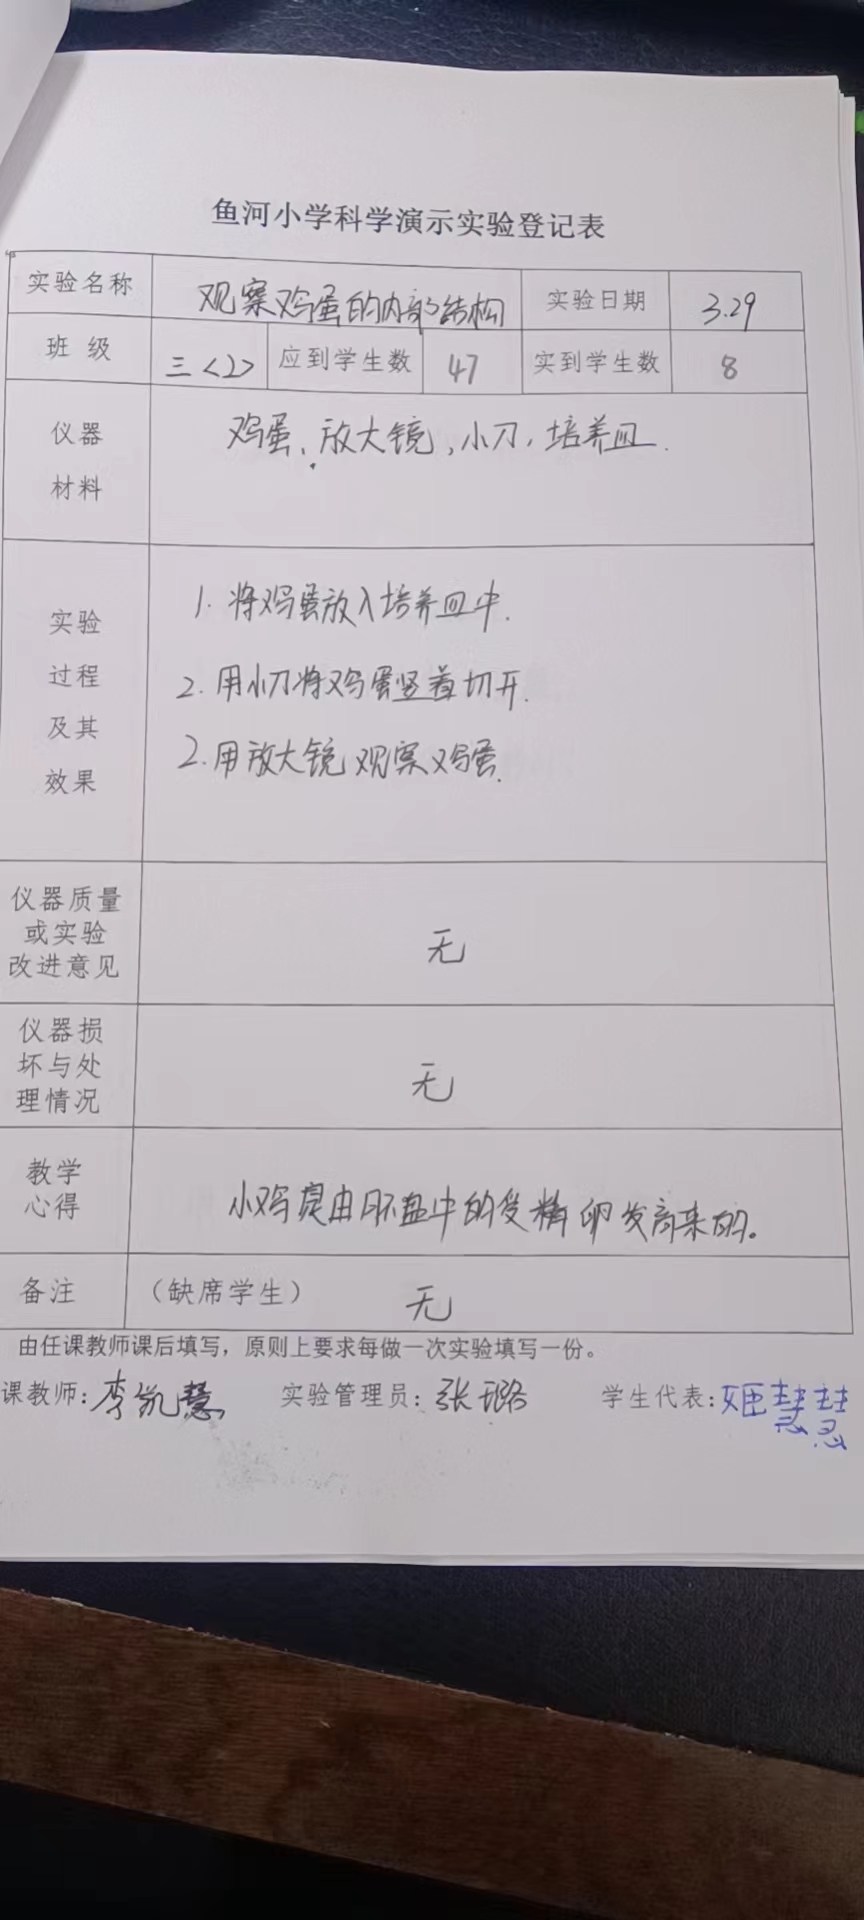 鱼河小学科学演示实验登记表
实验名称 观察鸡蛋的内部结构 实验日期 3.29
班 级 三<2> 应到学生数 47 实到学生数 8
仪器
材料
鸡蛋、放大镜,小刀,培养皿.
实验
过程
及其
效果
1. 将鸡蛋放入培养皿中.
2. 用小刀将鸡蛋竖着切开.
2. 用放大镜观察鸡蛋.
仪器质量
或实验
改进意见
无
仪器损
坏与处
理情况
无
教学
心得
小鸡是由胚盘中的受精卵发育来的。
备注 (缺席学生) 无
由任课教师课后填写,原则上要求每做一次实验填写一份。
课教师:李凯慧 实验管理员:张璐 学生代表:姬慧慧